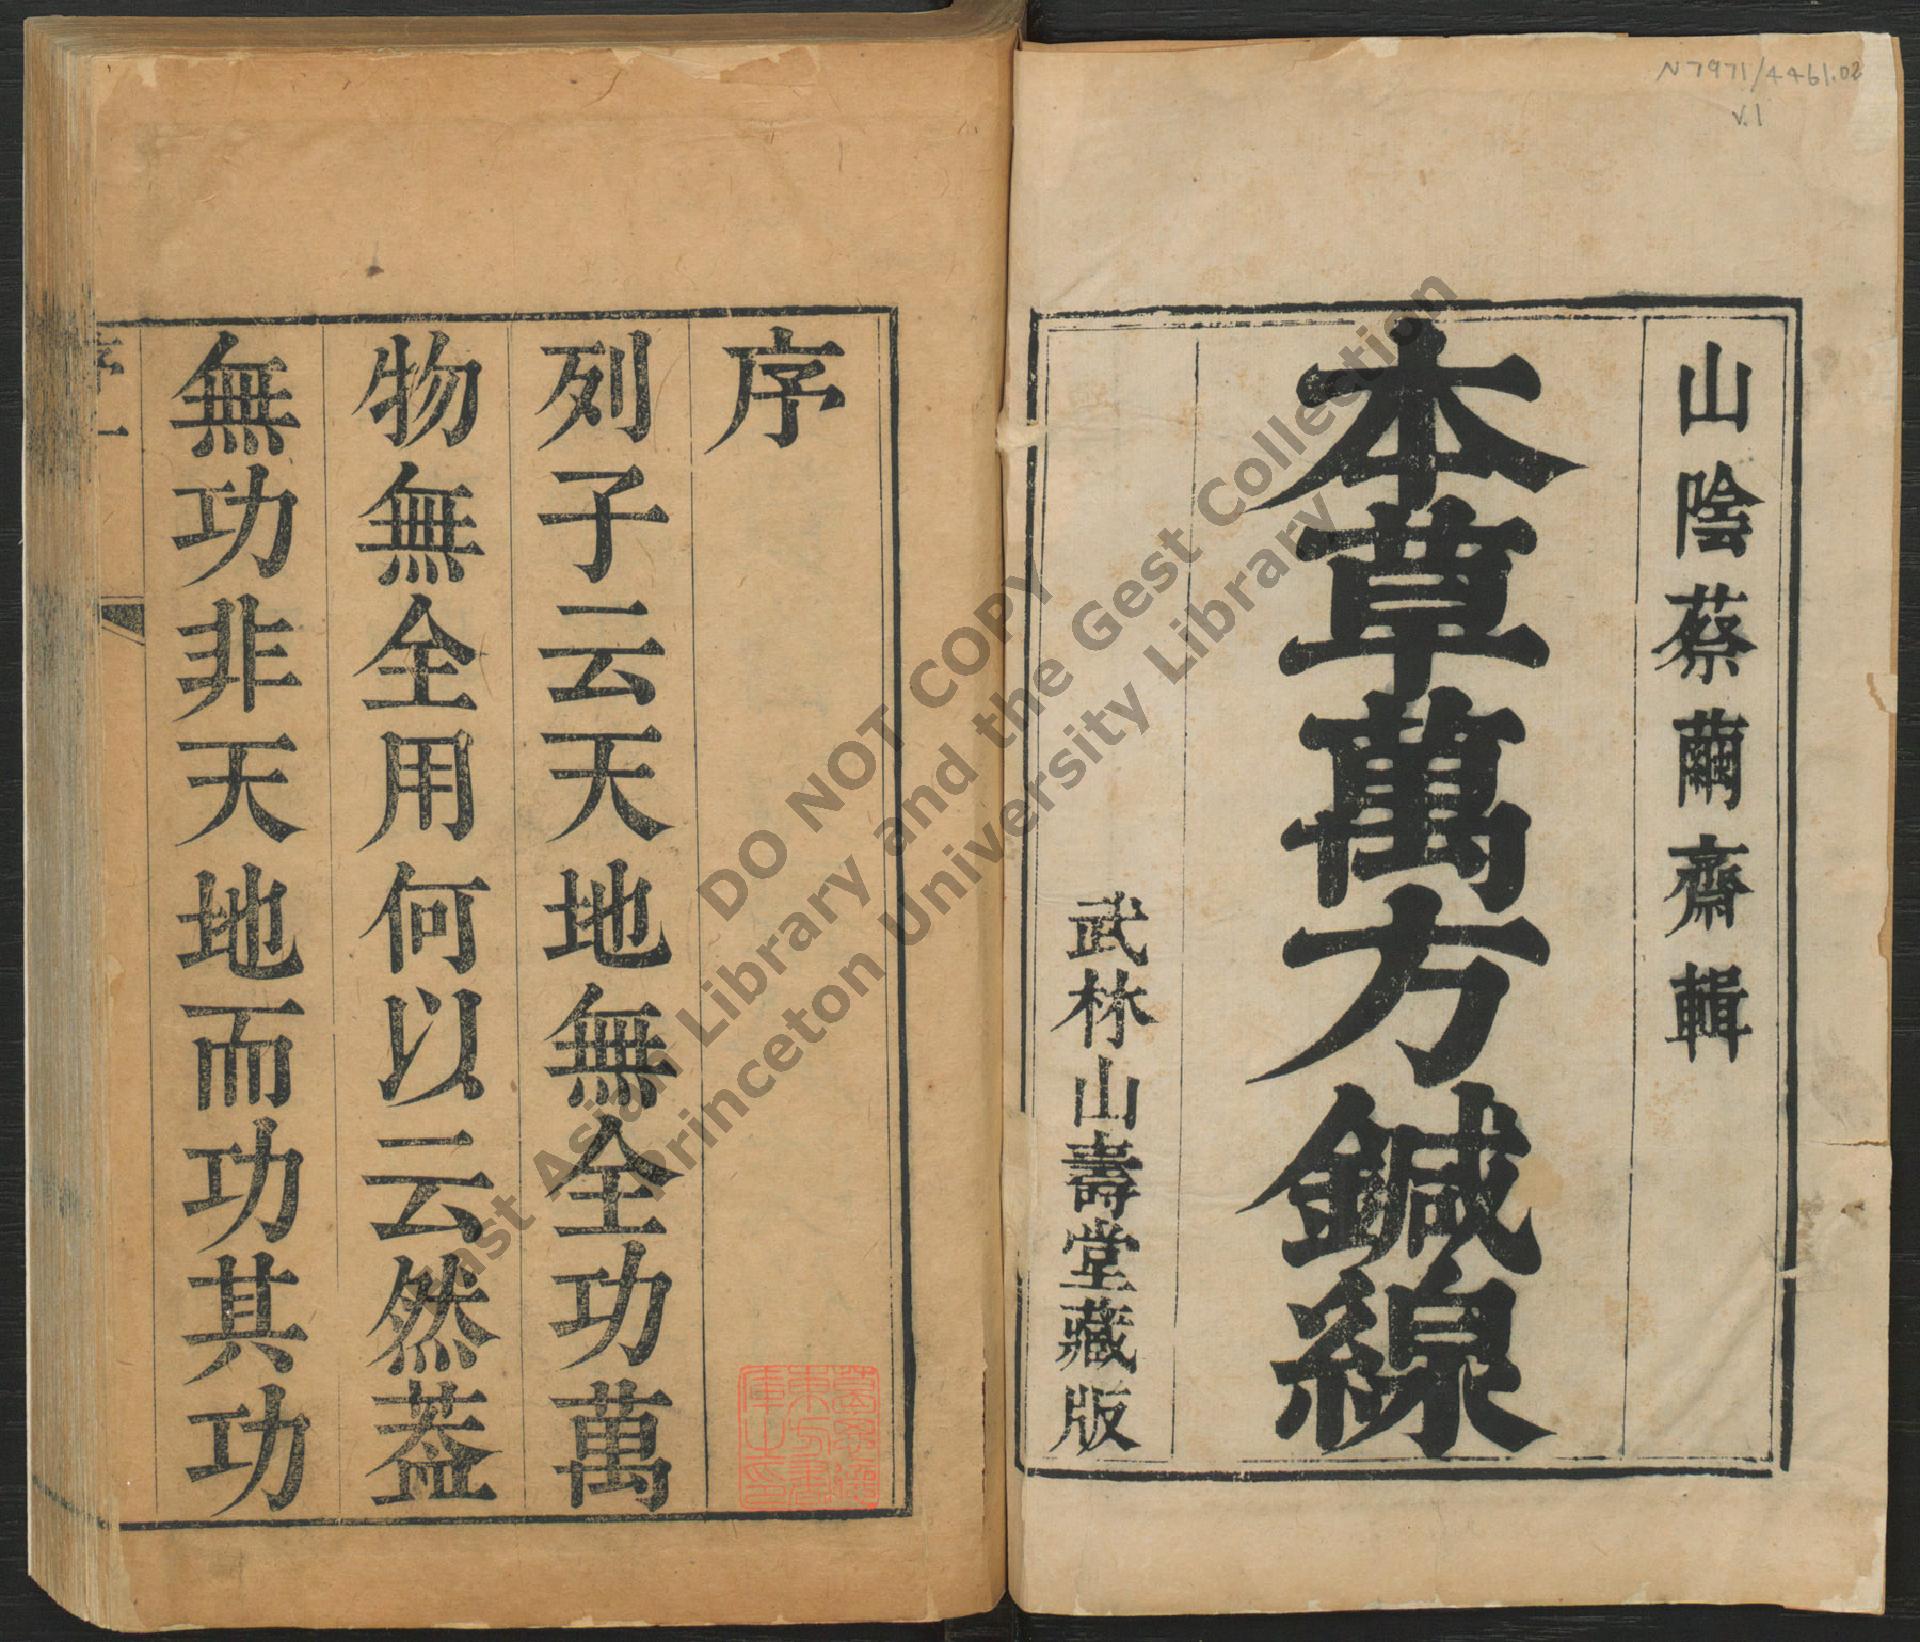 N7971/4461.02
v.1
山陰蔡繭齋輯
本草萬方鍼線
武林山壽堂藏版
序
列子云天地無全功萬
物無全用何以云然葢
無功非天地而功其功
序
一
葛思德
東方書
庫之印
DO NOT COPY
East Asian Library and the Gest Collection
Princeton University Library